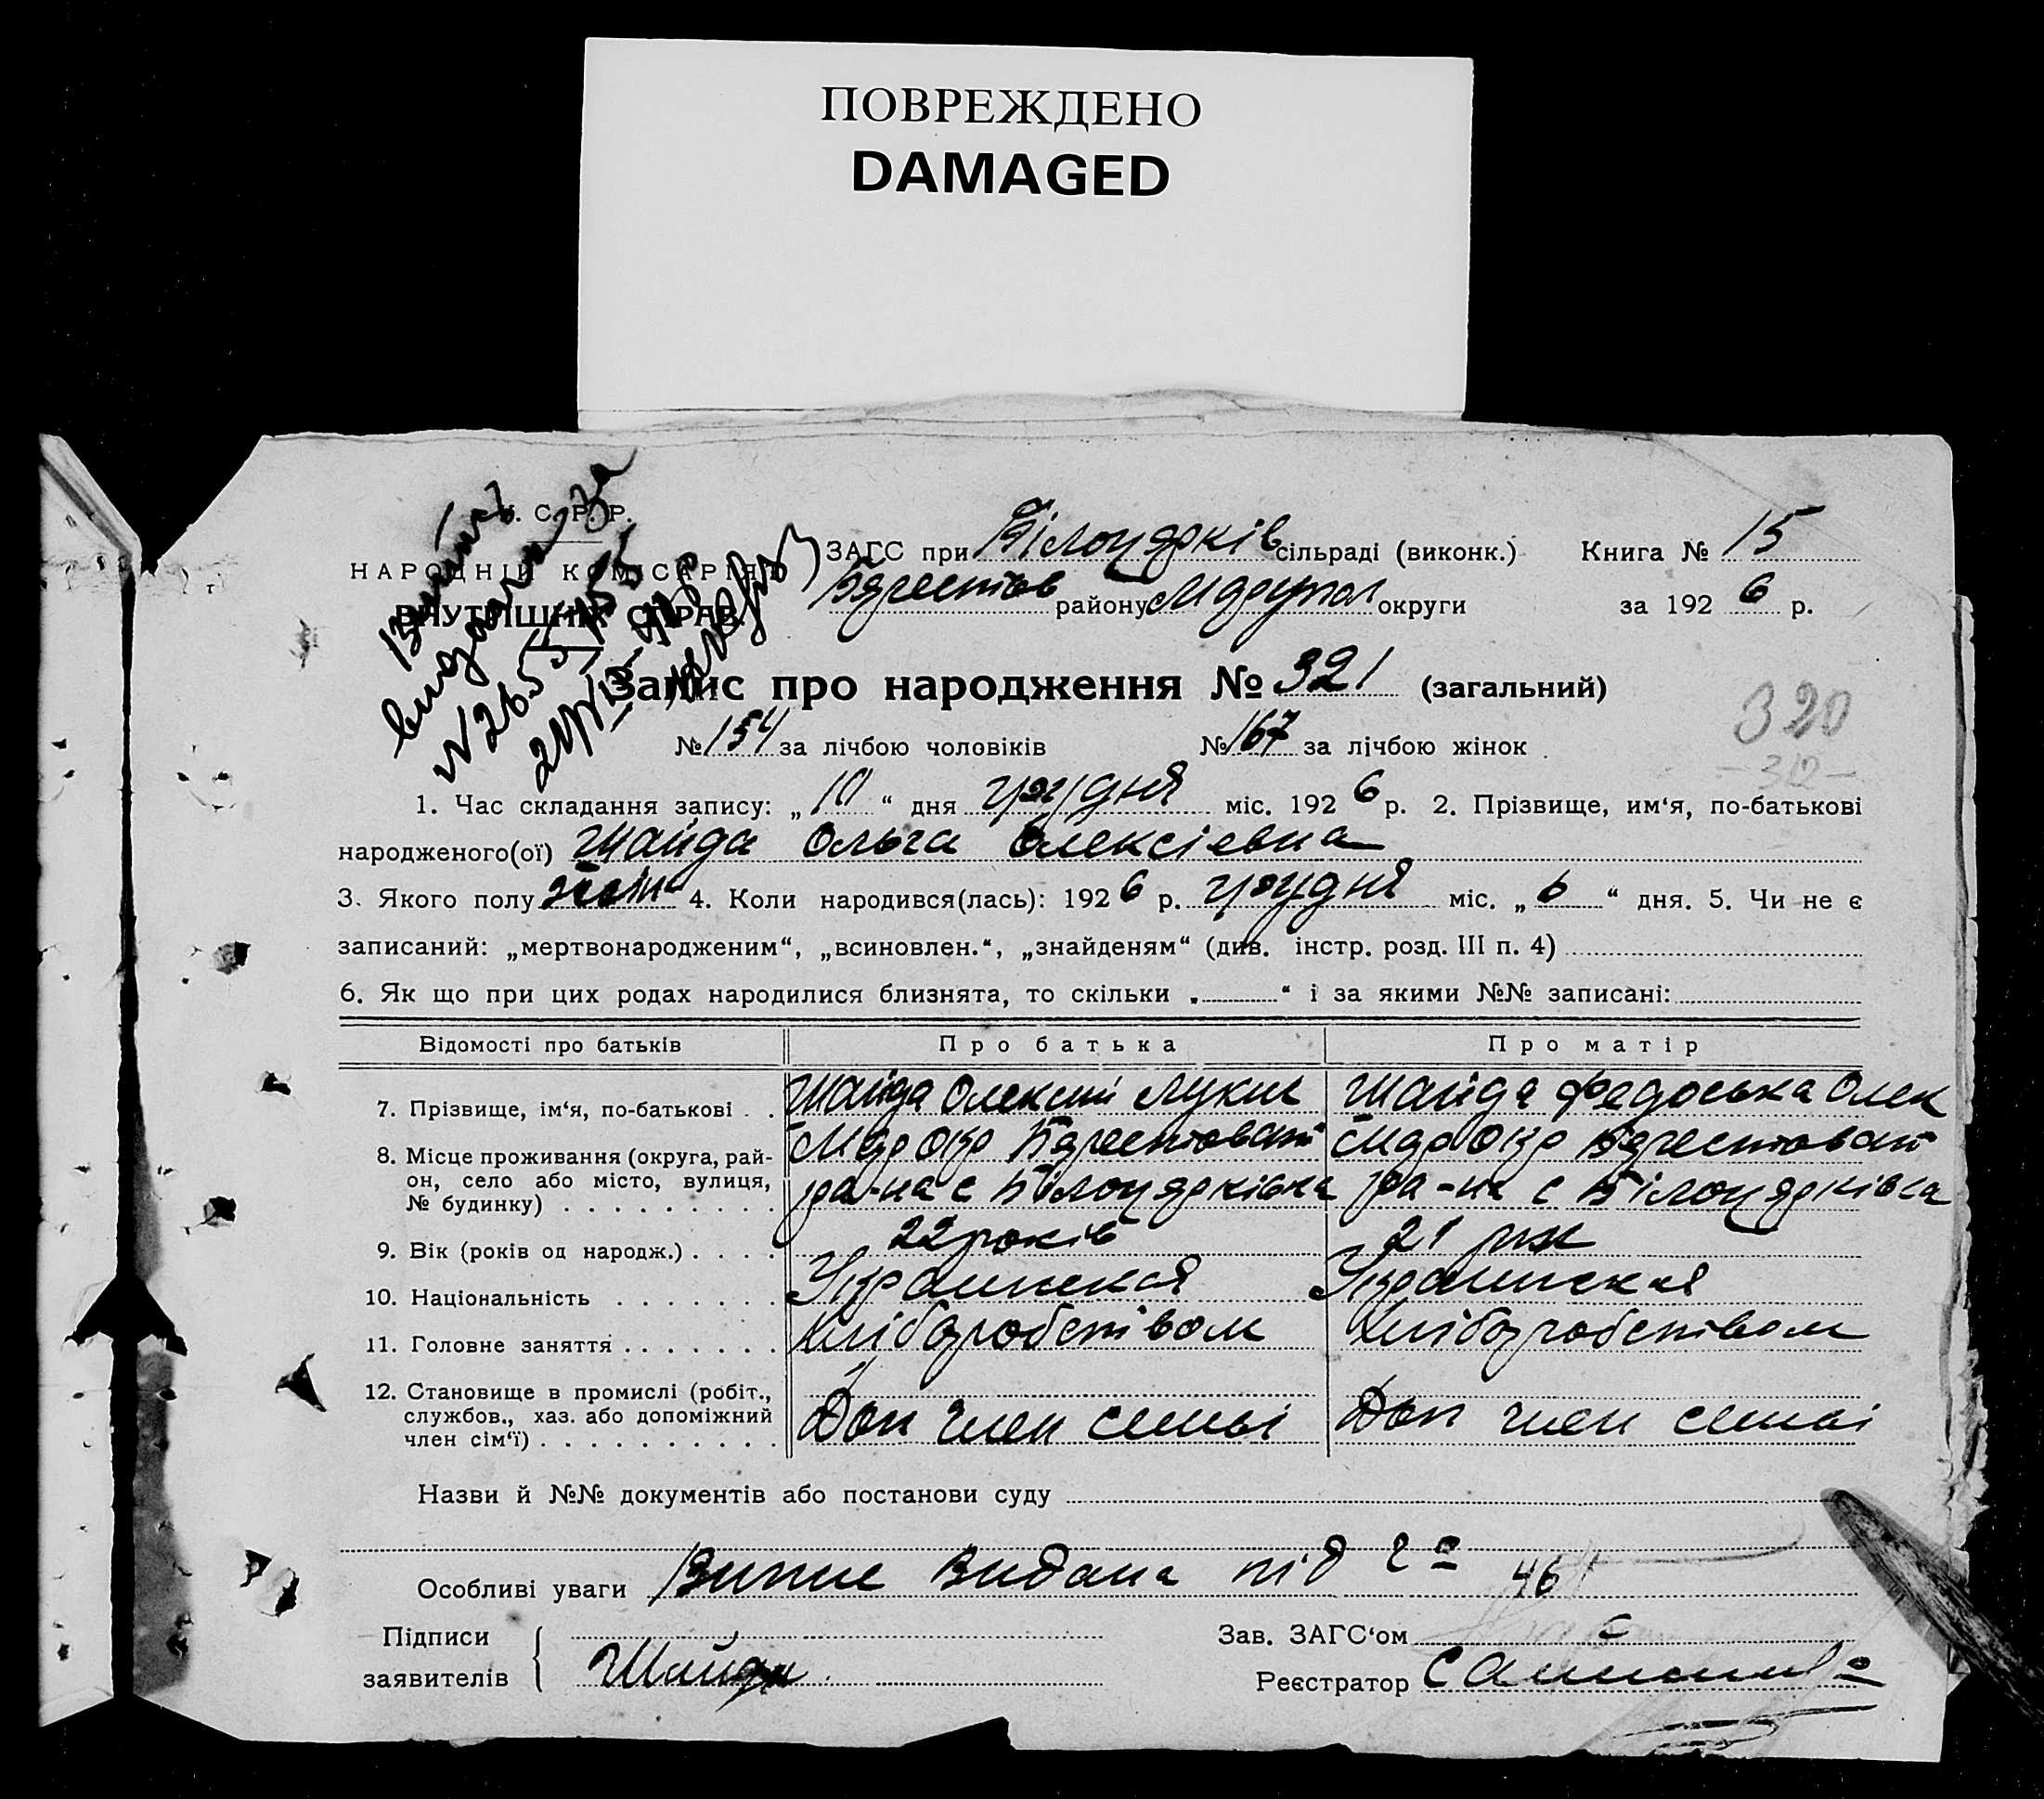 ПОВРЕЖДЕНО
DAMAGED
. С. Р. Р.
НАРОДНІЙ КОМІСАРІЯТ
ВНУТРІШНІХ СПРАВ.
ЗАГС при Білоцярків сільраді (виконк.) Книга № 15
району округи за 192 6 р.
Запис про народження № 321 (загальний)
№ 154 за лічбою чоловіків № 167 за лічбою жінок
320
1. Час складання запису: „ 10 “ дня грудня міс. 192 6 р. 2. Прізвище, им‘я, по-батькові
народженого(ої) Шайда Ольга Олексієвна
3. Якого полу 4. Коли народився(лась): 192 6 р. грудня міс. „ 6 “ дня. 5. Чи не є
записаний: „мертвонародженим“, „всиновлен.“, „знайденям“ (див. інстр. розд. III п. 4)
6. Як що при цих родах народилися близнята, то скільки „ “ і за якими №№ записані:
Відомості про батьків Про батька Про матір
7. Прізвище, ім‘я, по-батькові . . Шайда Олексій Шайда Федоська Олек
8. Місце проживання (округа, рай-
он, село або місто, вулиця,
№ будинку) . . . . . . . . . ра-на с Білоцярківка ра-на с Білоцярківка
9. Вік (років од народж.) . . . . 22 років 21 рік
10. Національність . . . . . . . Украинская Украинская
11. Головне заняття . . . . . . . Хліборобством Хліборобством
12. Становище в промислі (робіт.,
службов., хаз. або допоміжний
член сім‘ї) . . . . . . . . . . Доп член семьі Доп член семьі
Назви й №№ документів або постанови суду
Особливі уваги Випис Видана під 46
Підписи
заявителів Шайда
Зав. ЗАГС‘ом
Реєстратор